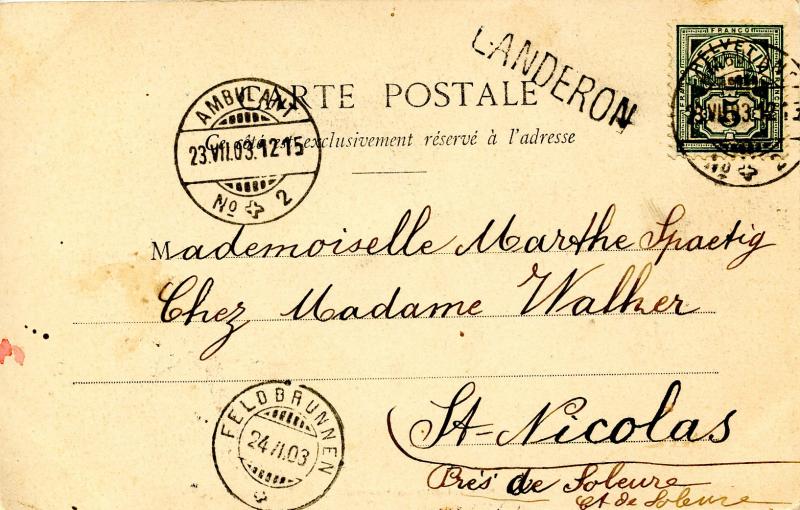 LANDERON
FRANCO
HELVETIA
5
CARTE POSTALE
Ce côté est exclusivement réservé à l'adresse
AMBULANT
23.VII.03.12-15
No 2
No 2
Mademoiselle Marthe Spaetig
Chez Madame Walker
St-Nicolas
Près de Soleure
Ct de Soleure
FELDBRUNNEN
24.VII.03